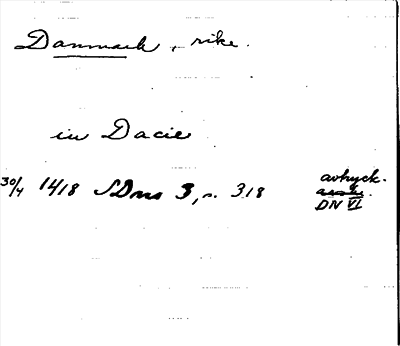 Danmark, rike.
in Dacie
30/4 1418 SDns 3, n. 318 avtryck.
DN VI